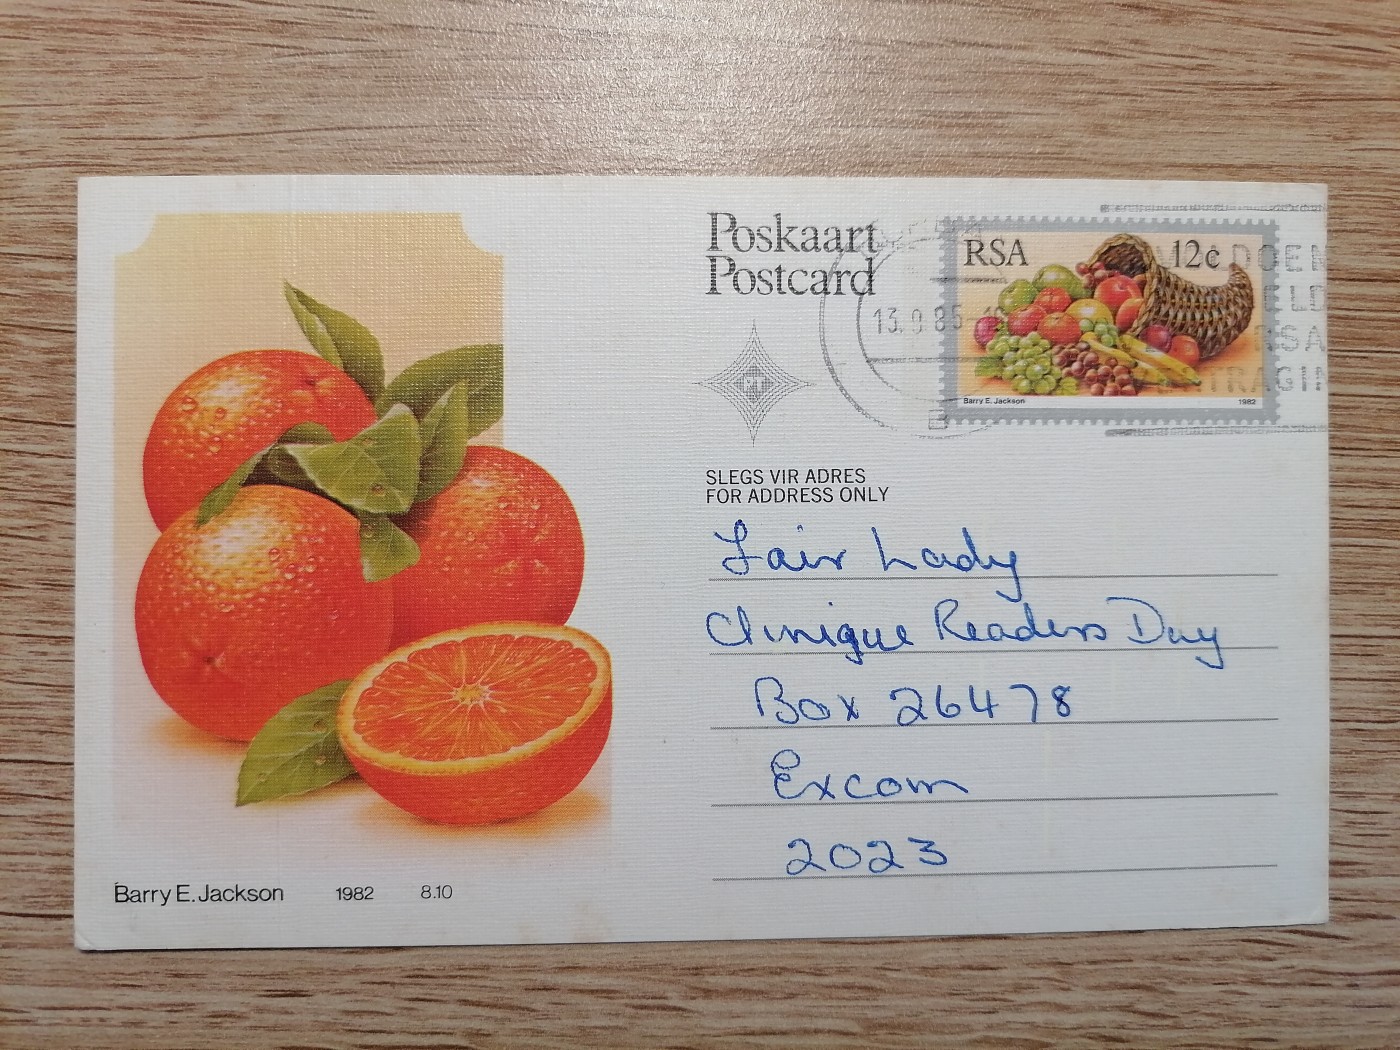 Poskaart
Postcard
RSA 12c
13.9.85
Barry E. Jackson 1982
SLEGS VIR ADRES
FOR ADDRESS ONLY
Fair Lady
Clinique Readers Day
Box 26478
Excom
2023
Barry E. Jackson 1982 8.10